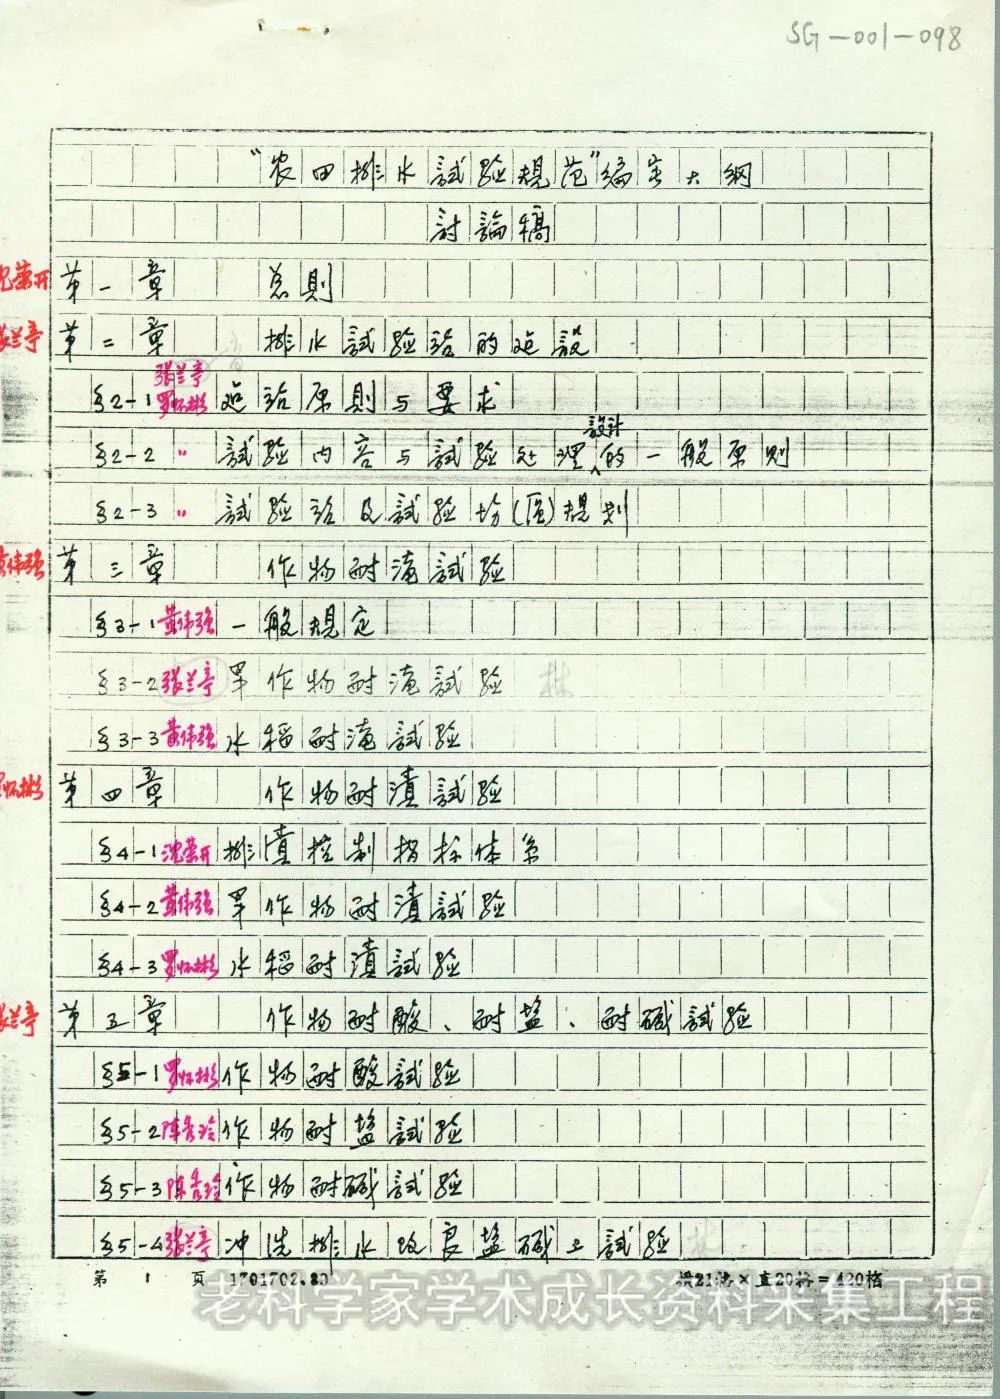 SG-001-098
“农田排水試验規范”编写大纲
討論稿
沈荣开 第一章 总則
张兰亭 第二章 排水試验站的建設
§2-1 张兰亭 罗怀彬 建站原則与要求
§2-2 〃 試验内容与試验处理設計的一般原则
§2-3 〃 試验站及試验場(区)規划
黄伟强 第三章 作物耐淹試验
§3-1 黄伟强 一般規定
§3-2 张兰亭 旱作物耐淹試验 林
§3-3 黄伟强 水稻耐淹試验
罗怀彬 第四章 作物耐渍試验
§4-1 沈荣开 排渍控制指标体系
§4-2 黄伟强 旱作物耐渍試验
§4-3 罗怀彬 水稻耐渍試验
张兰亭 第五章 作物耐酸、耐盐、耐碱試验
§5-1 罗怀彬 作物耐酸試验
§5-2 陈秀玲 作物耐盐試验
§5-3 陈秀玲 作物耐碱試验
§5-4 张兰亭 冲洗排水改良盐碱土試验 林
第 1 页 1701702.80 横21格×直20格=420格
老科学家学术成长资料采集工程